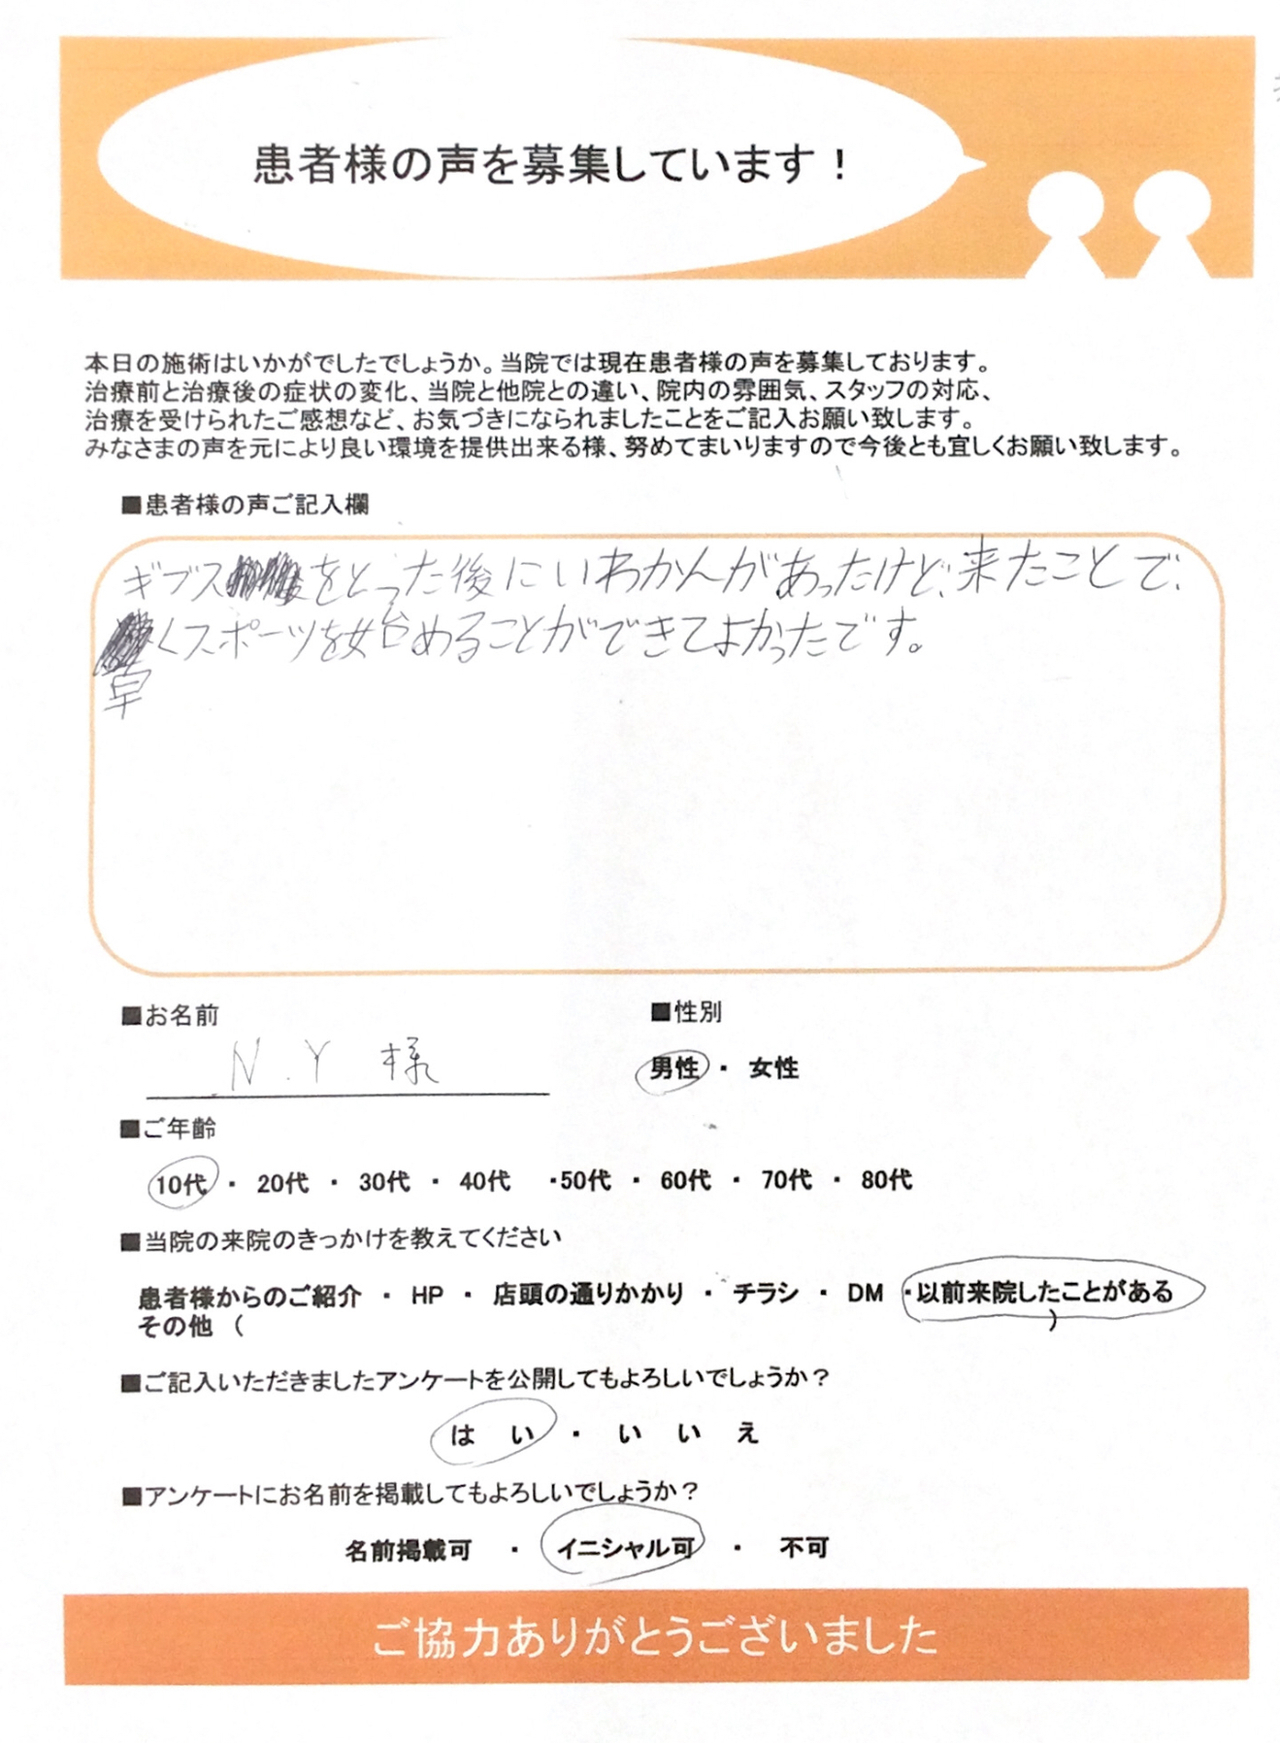 患者様の声を募集しています！
本日の施術はいかがでしたでしょうか。当院では現在患者様の声を募集しております。
治療前と治療後の症状の変化、当院と他院との違い、院内の雰囲気、スタッフの対応、
治療を受けられたご感想など、お気づきになられましたことをご記入お願い致します。
みなさまの声を元により良い環境を提供出来る様、努めてまいりますので今後とも宜しくお願い致します。
■患者様の声ご記入欄
ギブスをとった後にいわかんがあったけど、来たことで、
くスポーツを始めることができてよかったです。
早
■お名前
N.Y 様
■性別
男性 ・ 女性
■ご年齢
10代 ・ 20代 ・ 30代 ・ 40代 ・50代 ・ 60代 ・ 70代 ・ 80代
■当院の来院のきっかけを教えてください
患者様からのご紹介 ・ HP ・ 店頭の通りかかり ・ チラシ ・ DM ・以前来院したことがある
その他 （ ）
■ご記入いただきましたアンケートを公開してもよろしいでしょうか？
は い ・ い い え
■アンケートにお名前を掲載してもよろしいでしょうか？
名前掲載可 ・ イニシャル可 ・ 不可
ご協力ありがとうございました